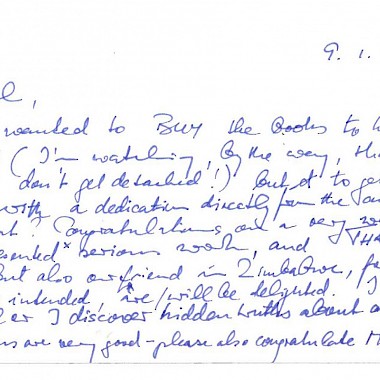 9. 1.
l,
wanted to BUY the books to h
(I'm watching, by the way, th
don't get detached!) but to ge
with a dedication directly from the au
? Congratulations on a very w
esented* serious work, and THA
But also our friend in Zimbabwe, f
intended, is/will be delighted.
er I discover hidden truths about a
ns are very good - please also congratulate M